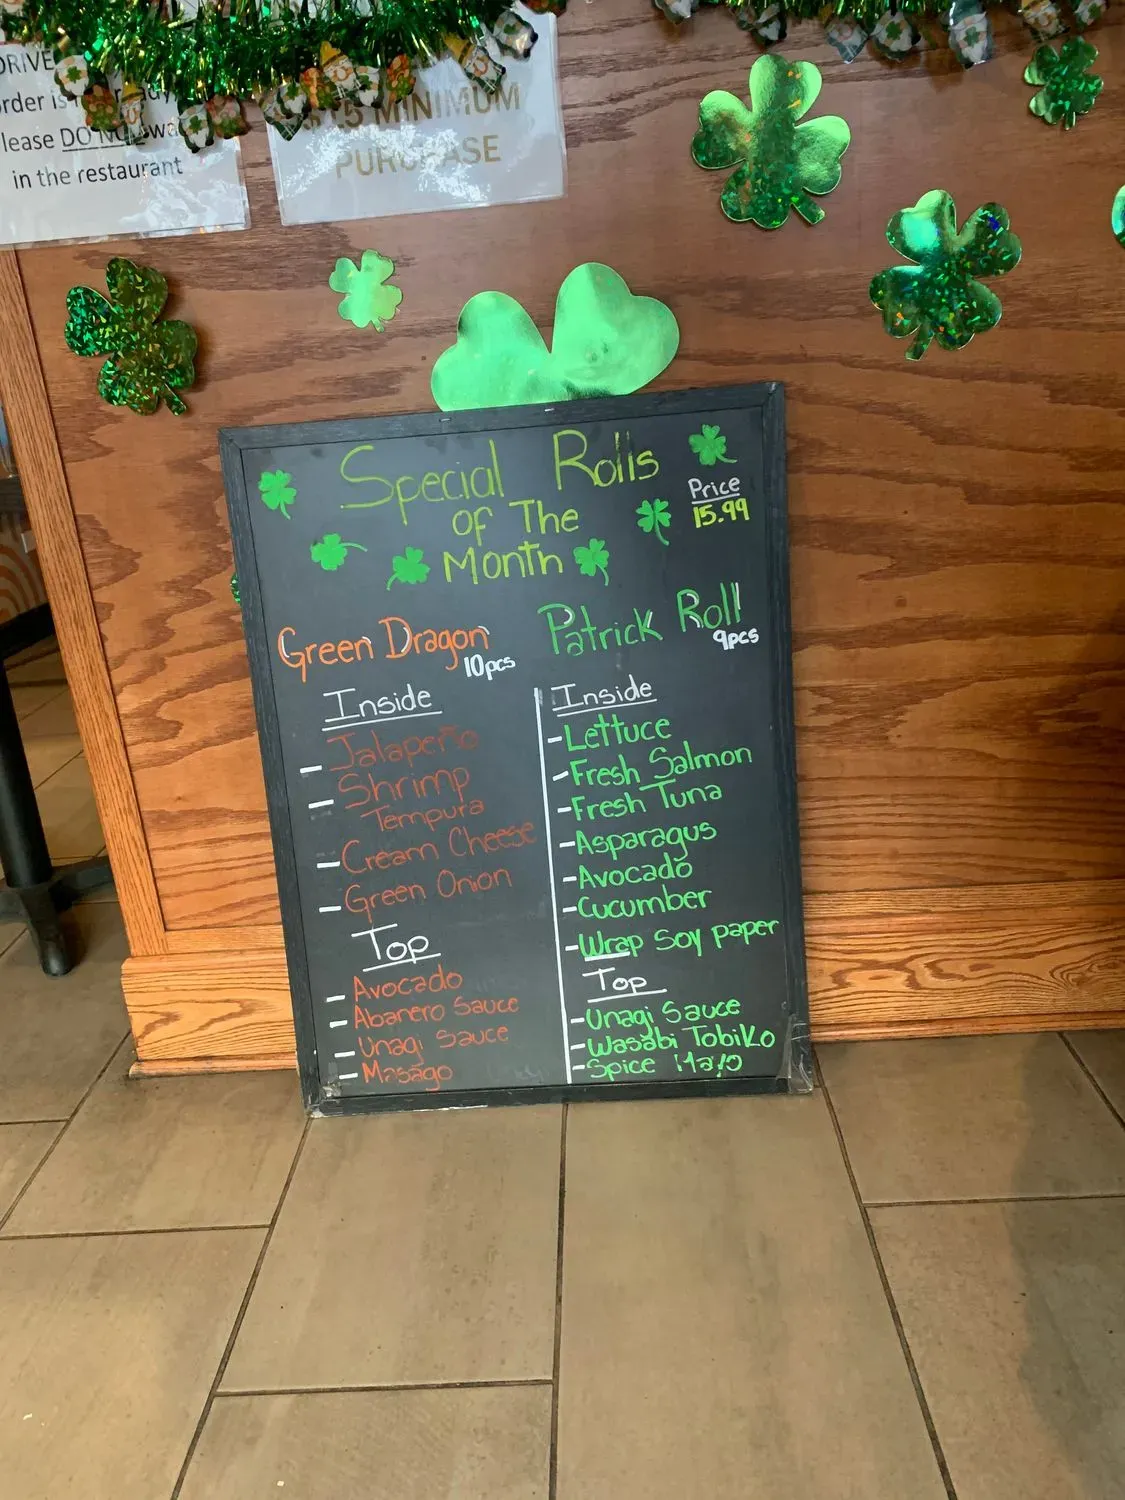 DRIVE
order is
lease DO NOT
in the restaurant
5 MINIMUM
PURCHASE
Special Rolls
of The
Month
Price
15.99
Green Dragon
10pcs
Inside
- Jalapeño
- Shrimp
Tempura
- Cream Cheese
- Green Onion
Top
- Avocado
- Abanero Sauce
- Unagi Sauce
- Masago
Patrick Roll
9pcs
Inside
- Lettuce
- Fresh Salmon
- Fresh Tuna
- Asparagus
- Avocado
- Cucumber
- Wrap Soy paper
Top
- Unagi Sauce
- Wasabi Tobiko
- Spice Mayo